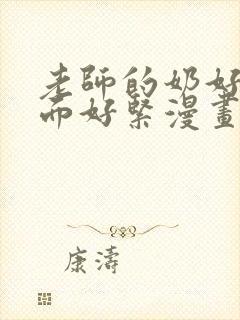 老師的奶好
而好緊漫畫
康濤